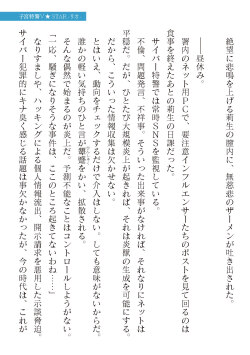 子宮特警リ★ＳＴＡＲ・リオ
絶望に悲鳴を上げる莉生の膣内に、無慈悲のザーメンが吐き出された。
――昼休み。
署内のネット用ＰＣで、要注意インフルエンサーたちのポストを見て回るのは
食事を終えたあとの莉生の日課だった。
サイバー特警では常時ＳＮＳを監視している。
不倫、問題発言、不祥事。そういった出来事がなければ、それなりにネットは
平穏だ。だが、ひとたび大規模炎上が起きれば、それは炎獄の生成を可能にする。
だからこそ、こういった情報収集は欠かせない。
とはいえ、動向をチェックするだけで介入はしない。しても意味がないからだ。
誰かの軽い気持ちのひと言が顰蹙をかい、拡散される。
そんな偶然で始まるのが炎上だ。予測不能なことはコントロールしようがない。
「一応、騒ぎになりそうな事件は、このところ起きてないわね……」
なりすましや、ハッキングによる個人情報流出、開示請求を悪用した示談脅迫。
サイバー犯罪的にキナ臭く感じる話題は事欠かなかったが、今の時代は、これが